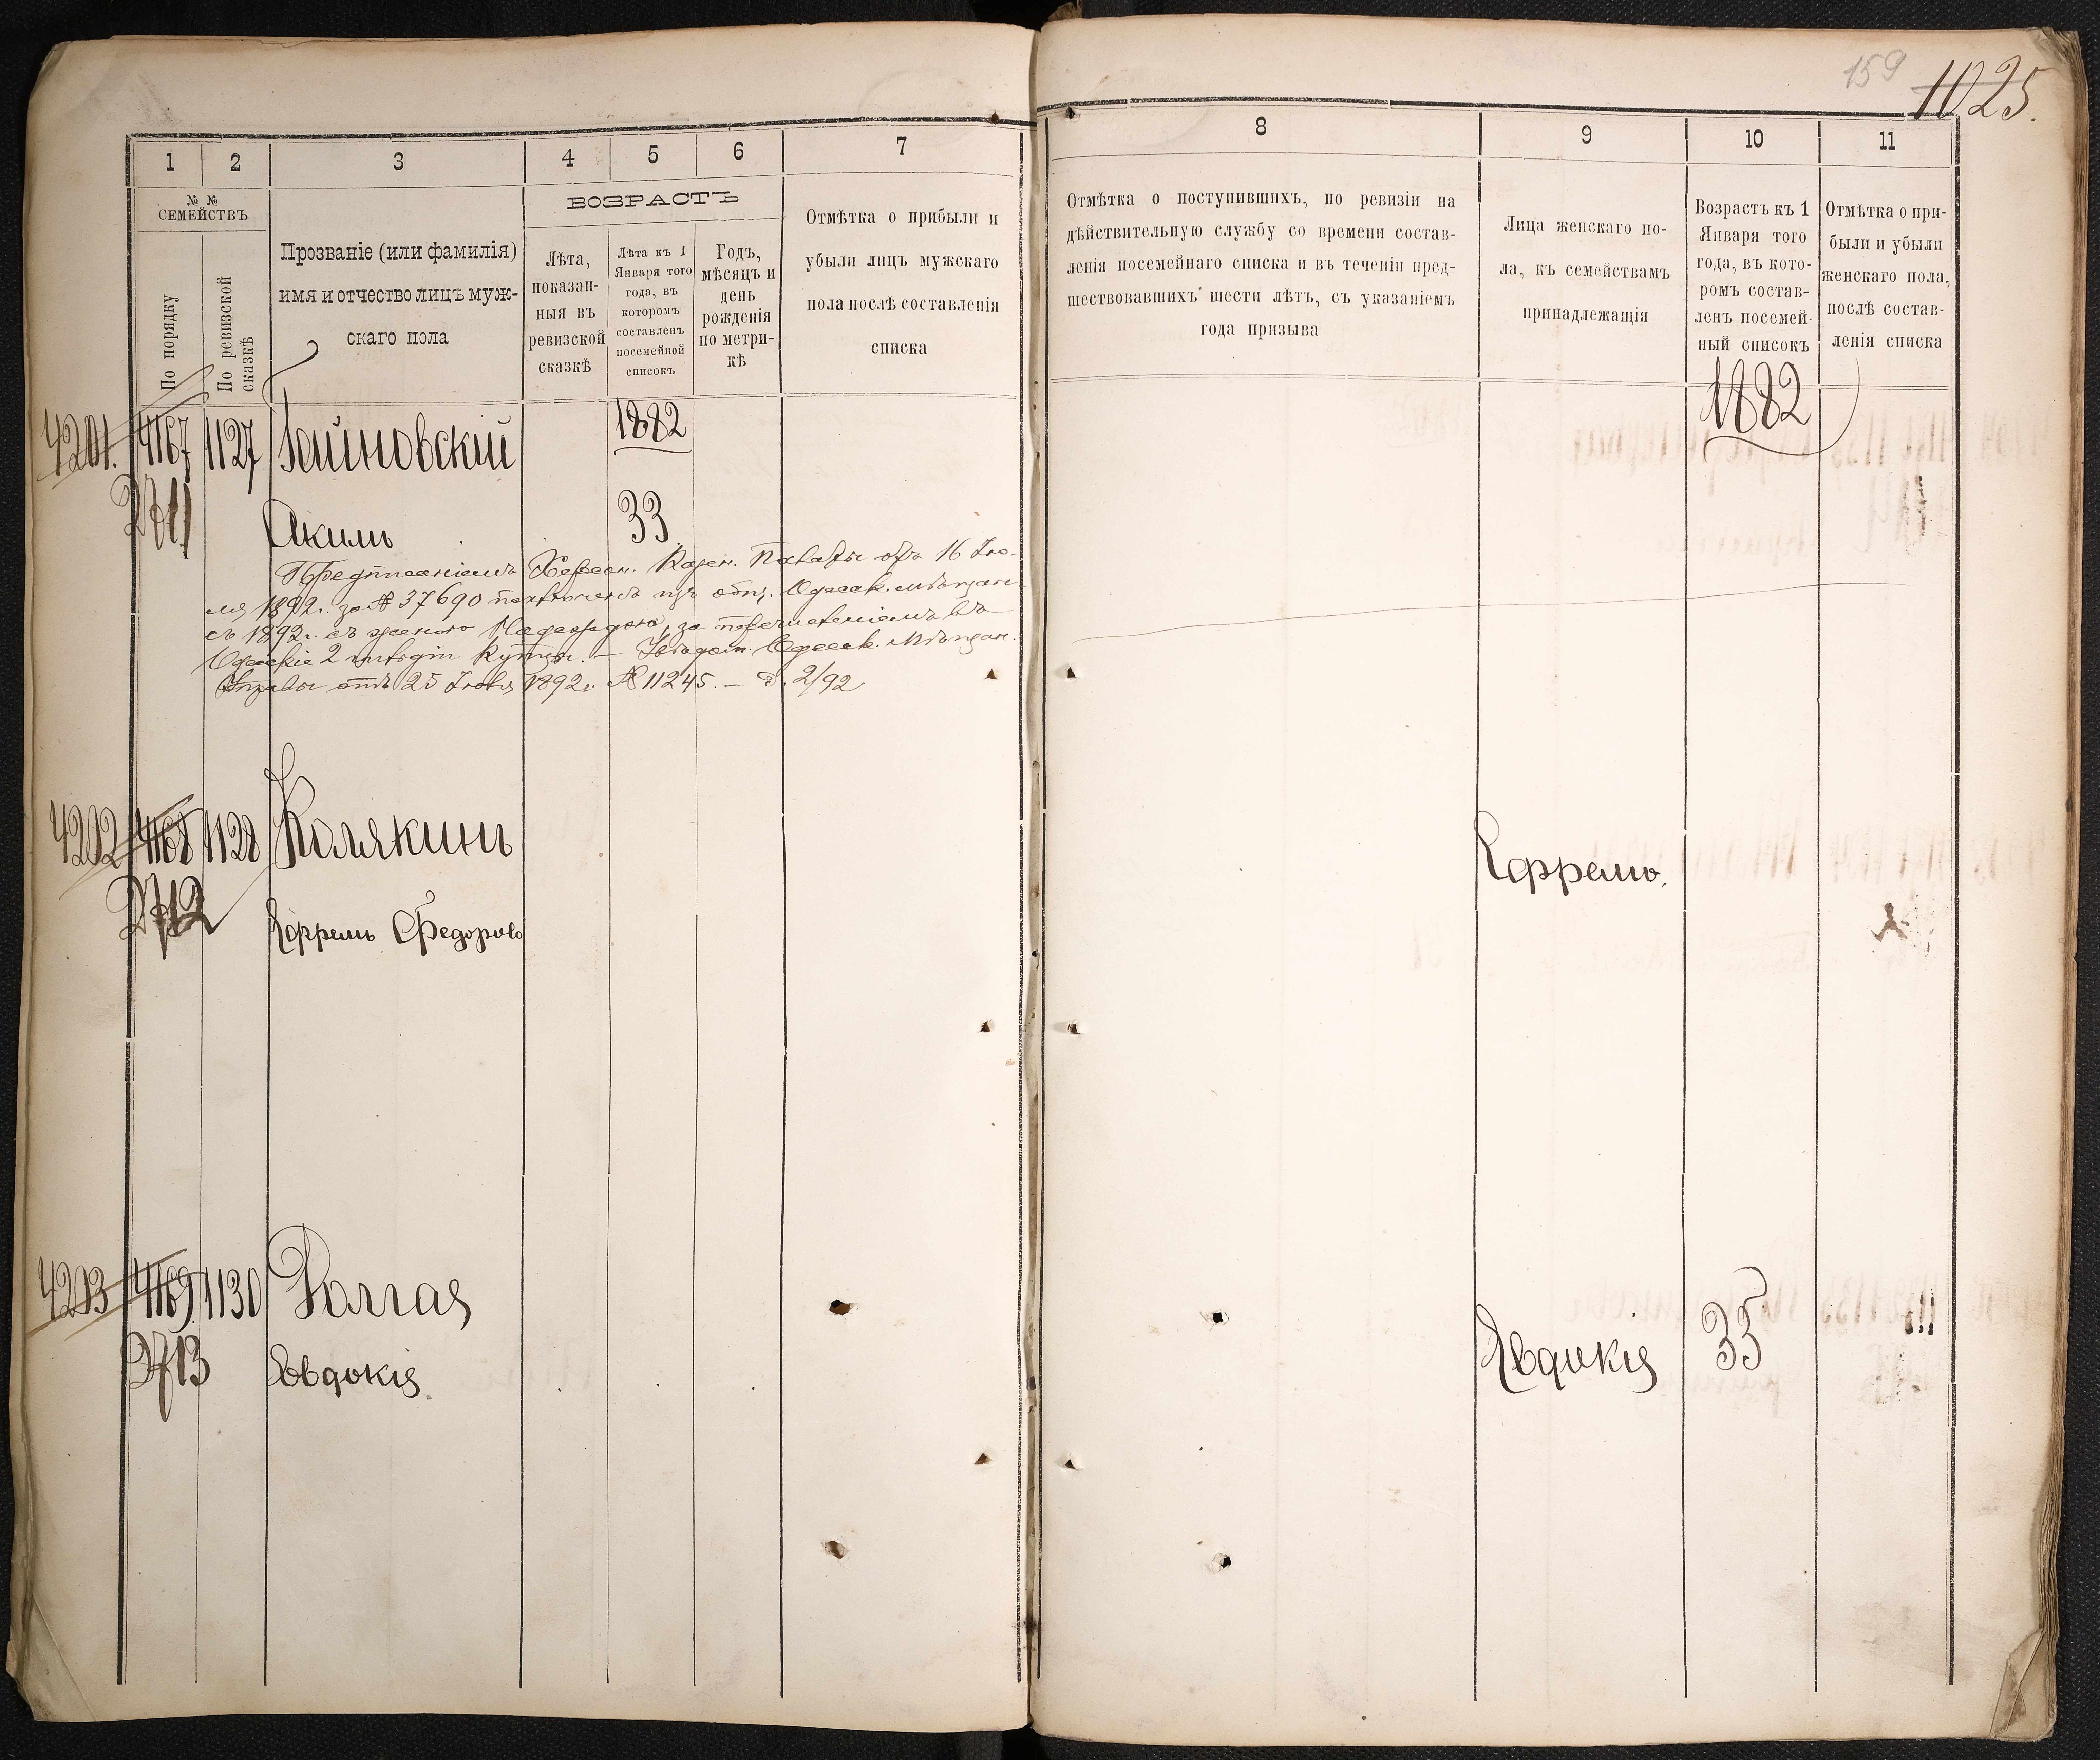 159
1025.
1
2
3
4
5
6
7
8
9
10
11
№ №
СЕМЕЙСТВЪ
По порядку
По ревизской
сказкѣ
Прозваніе (или фамилія)
имя и отчество лицъ муж-
скаго пола
ВОЗРАСТЪ
Лѣта,
показан-
ныя въ
ревизской
сказкѣ
Лѣта къ 1
Января того
года, въ
которомъ
составленъ
посемейной
списокъ
Годъ,
мѣсяцъ и
день
рожденія
по метри-
кѣ
Отмѣтка о прибыли и
убыли лицъ мужскаго
пола послѣ составленія
списка
Отмѣтка о поступившихъ, по ревизіи на
дѣйствительную службу со времени состав-
ленія посемейнаго списка и въ теченіи пред-
шествовавшихъ шести лѣтъ, съ указаніемъ
года призыва
Лица женскаго по-
ла, къ семействамъ
принадлежащія
Возрастъ къ 1
Января того
года, въ кото-
ромъ состав-
ленъ посемей-
ный списокъ
Отмѣтка о при-
были и убыли
женскаго пола,
послѣ состав-
ленія списка
4201. 4167 1127 1882 1882
2711
Акимъ 33
Предписаніемъ Херсон. Казен. Палаты отъ 16 Ію-
ля 1892 г. за № 37690 исключенъ изъ общ. Одесск. мѣщан
съ 1892 г. съ женою Надеждою, за перечисленіемъ въ
Одесскіе 2 гильдіи купцы. — Одесск. Мѣщан.
Управы отъ 25 1892 г. № 11245. — 2/92
4202 4168 1128 Колякинъ
2712
Ефремъ Федоровъ
Ефремъ.
4203 4169 1130 Долгая
2713
Евдокія
Евдокія 35